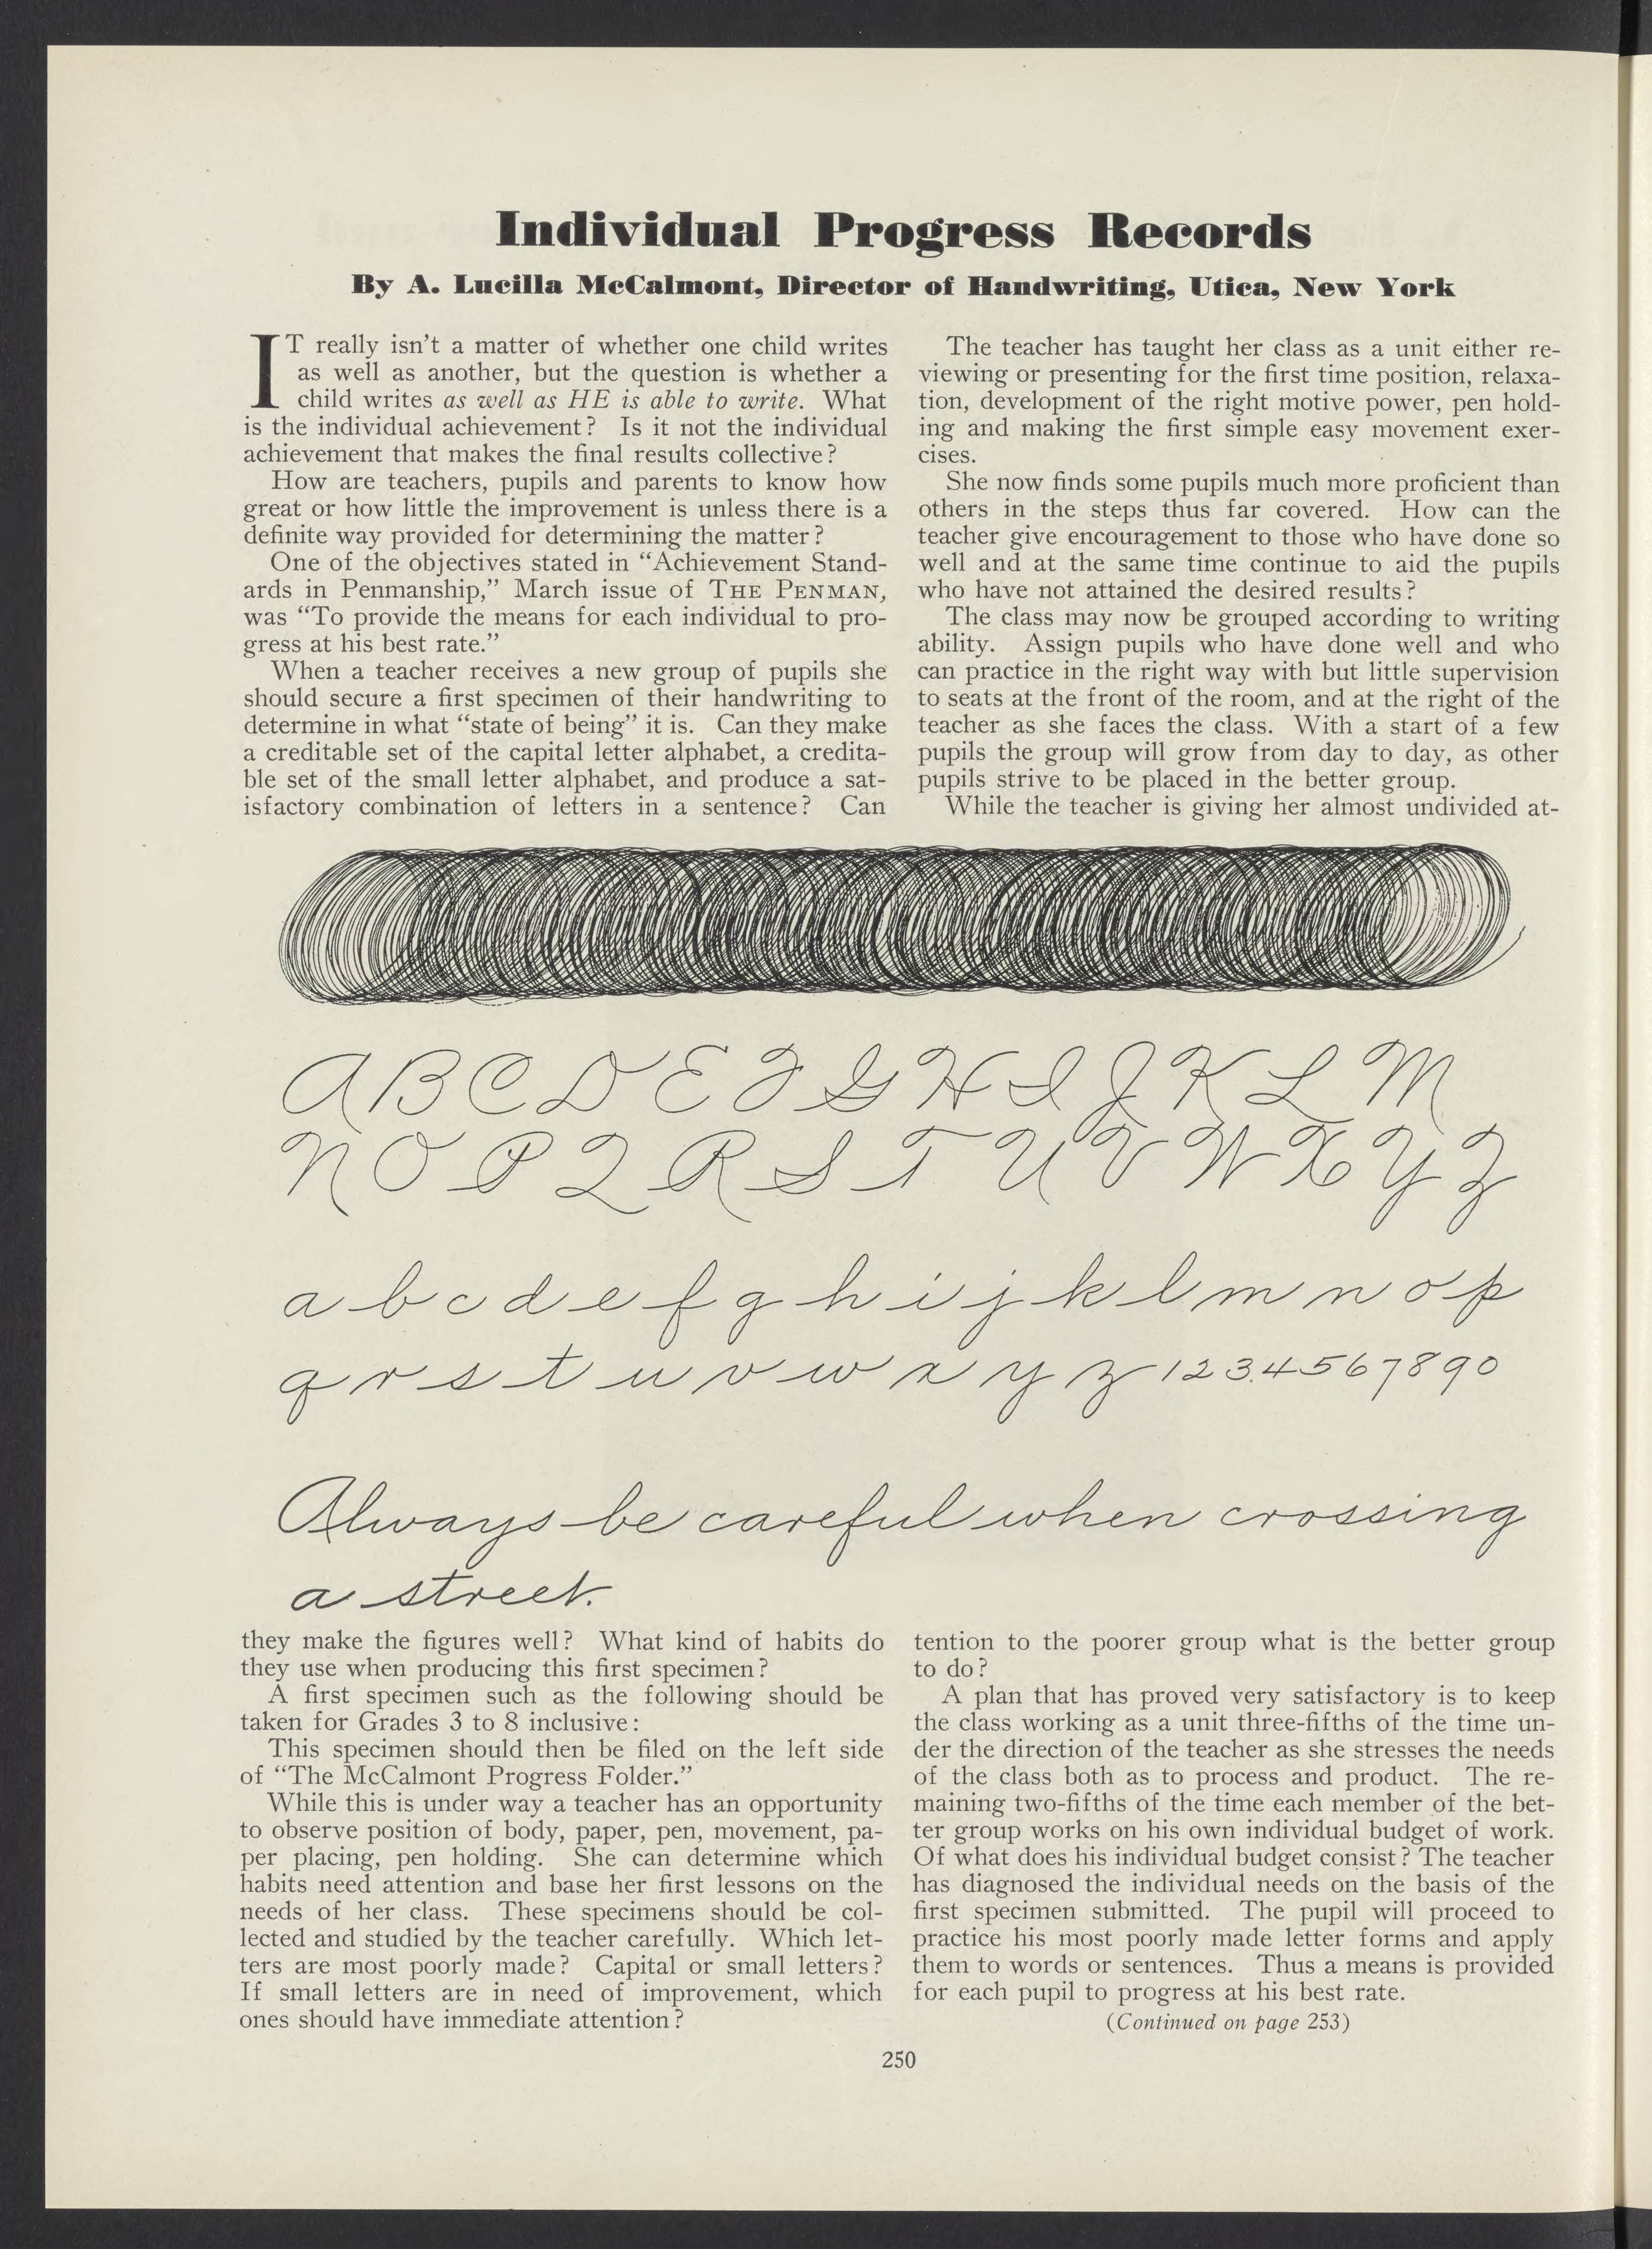 Individual Progress Records
By A. Lucilla McCalmont, Director of Handwriting, Utica, New York
IT really isn't a matter of whether one child writes
as well as another, but the question is whether a
child writes as well as HE is able to write. What
is the individual achievement? Is it not the individual
achievement that makes the final results collective?
How are teachers, pupils and parents to know how
great or how little the improvement is unless there is a
definite way provided for determining the matter?
One of the objectives stated in “Achievement Stand-
ards in Penmanship,” March issue of THE PENMAN,
was “To provide the means for each individual to pro-
gress at his best rate.”
When a teacher receives a new group of pupils she
should secure a first specimen of their handwriting to
determine in what “state of being” it is. Can they make
a creditable set of the capital letter alphabet, a credita-
ble set of the small letter alphabet, and produce a sat-
isfactory combination of letters in a sentence? Can
The teacher has taught her class as a unit either re-
viewing or presenting for the first time position, relaxa-
tion, development of the right motive power, pen hold-
ing and making the first simple easy movement exer-
cises.
She now finds some pupils much more proficient than
others in the steps thus far covered. How can the
teacher give encouragement to those who have done so
well and at the same time continue to aid the pupils
who have not attained the desired results?
The class may now be grouped according to writing
ability. Assign pupils who have done well and who
can practice in the right way with but little supervision
to seats at the front of the room, and at the right of the
teacher as she faces the class. With a start of a few
pupils the group will grow from day to day, as other
pupils strive to be placed in the better group.
While the teacher is giving her almost undivided at-
A B C D E F G H I J K L M
N O P Q R S T U V W X Y Z
a b c d e f g h i j k l m n o p
q r s t u v w x y z 1 2 3 4 5 6 7 8 9 0
Always be careful when crossing
a street.
they make the figures well? What kind of habits do
they use when producing this first specimen?
A first specimen such as the following should be
taken for Grades 3 to 8 inclusive:
This specimen should then be filed on the left side
of “The McCalmont Progress Folder.”
While this is under way a teacher has an opportunity
to observe position of body, paper, pen, movement, pa-
per placing, pen holding. She can determine which
habits need attention and base her first lessons on the
needs of her class. These specimens should be col-
lected and studied by the teacher carefully. Which let-
ters are most poorly made? Capital or small letters?
If small letters are in need of improvement, which
ones should have immediate attention?
tention to the poorer group what is the better group
to do?
A plan that has proved very satisfactory is to keep
the class working as a unit three-fifths of the time un-
der the direction of the teacher as she stresses the needs
of the class both as to process and product. The re-
maining two-fifths of the time each member of the bet-
ter group works on his own individual budget of work.
Of what does his individual budget consist? The teacher
has diagnosed the individual needs on the basis of the
first specimen submitted. The pupil will proceed to
practice his most poorly made letter forms and apply
them to words or sentences. Thus a means is provided
for each pupil to progress at his best rate.
(Continued on page 253)
250